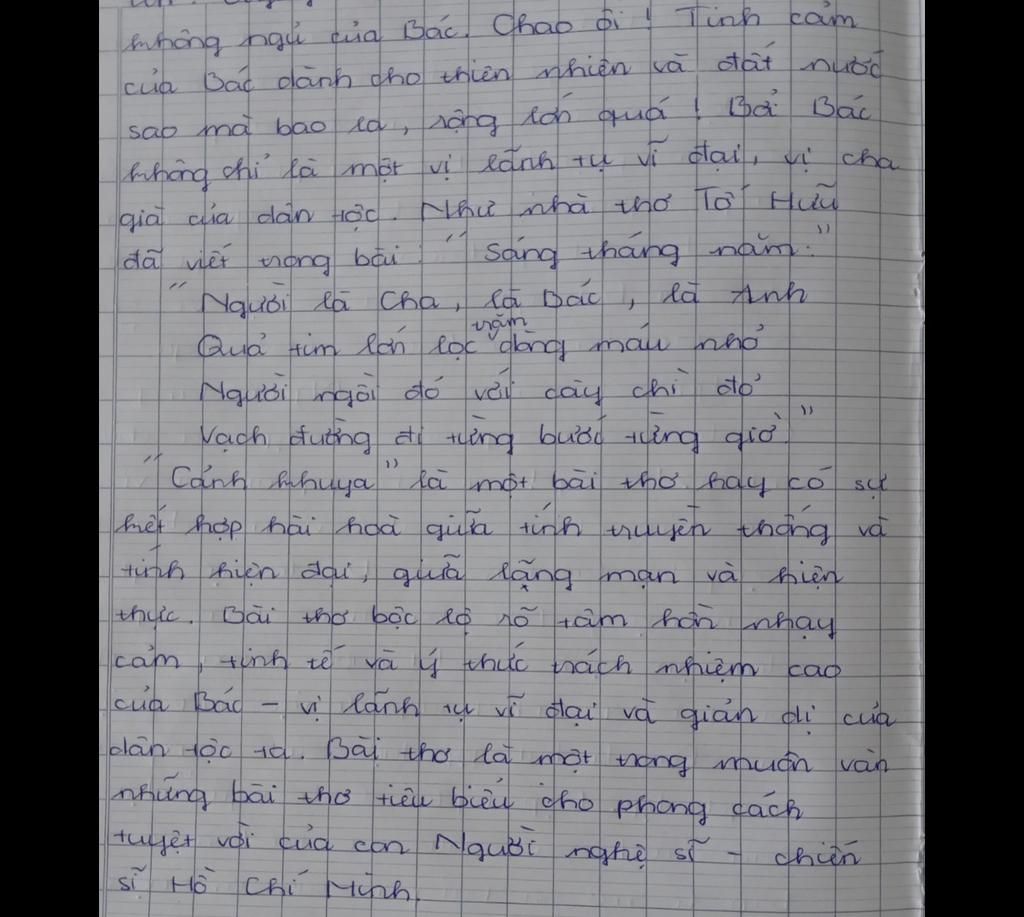 không ngủ của Bác. Chao ôi! Tình cảm
của Bác dành cho thiên nhiên và đất nước
sao mà bao la, rộng lớn quá! Bởi Bác
không chỉ là một vị lãnh tụ vĩ đại, vị cha
già của dân tộc. Như nhà thơ Tố Hữu
đã viết trong bài "Sáng tháng năm:"
"Người là Cha, là Bác, là Anh
Quả tim lớn lọc trăm dòng máu nhỏ
Người ngồi đó với cây chì đỏ
Vạch đường đi từng bước từng giờ."
"Cảnh khuya" là một bài thơ hay có sự
kết hợp hài hoà giữa tính truyền thống và
tính hiện đại, giữa lãng mạn và hiện
thực. Bài thơ bộc lộ rõ tâm hồn nhạy
cảm, tinh tế và ý thức trách nhiệm cao
của Bác - vị lãnh tụ vĩ đại và giản dị của
dân tộc ta. Bài thơ là một trong muôn vàn
những bài thơ tiêu biểu cho phong cách
tuyệt vời của con Người nghệ sĩ - chiến
sĩ Hồ Chí Minh.